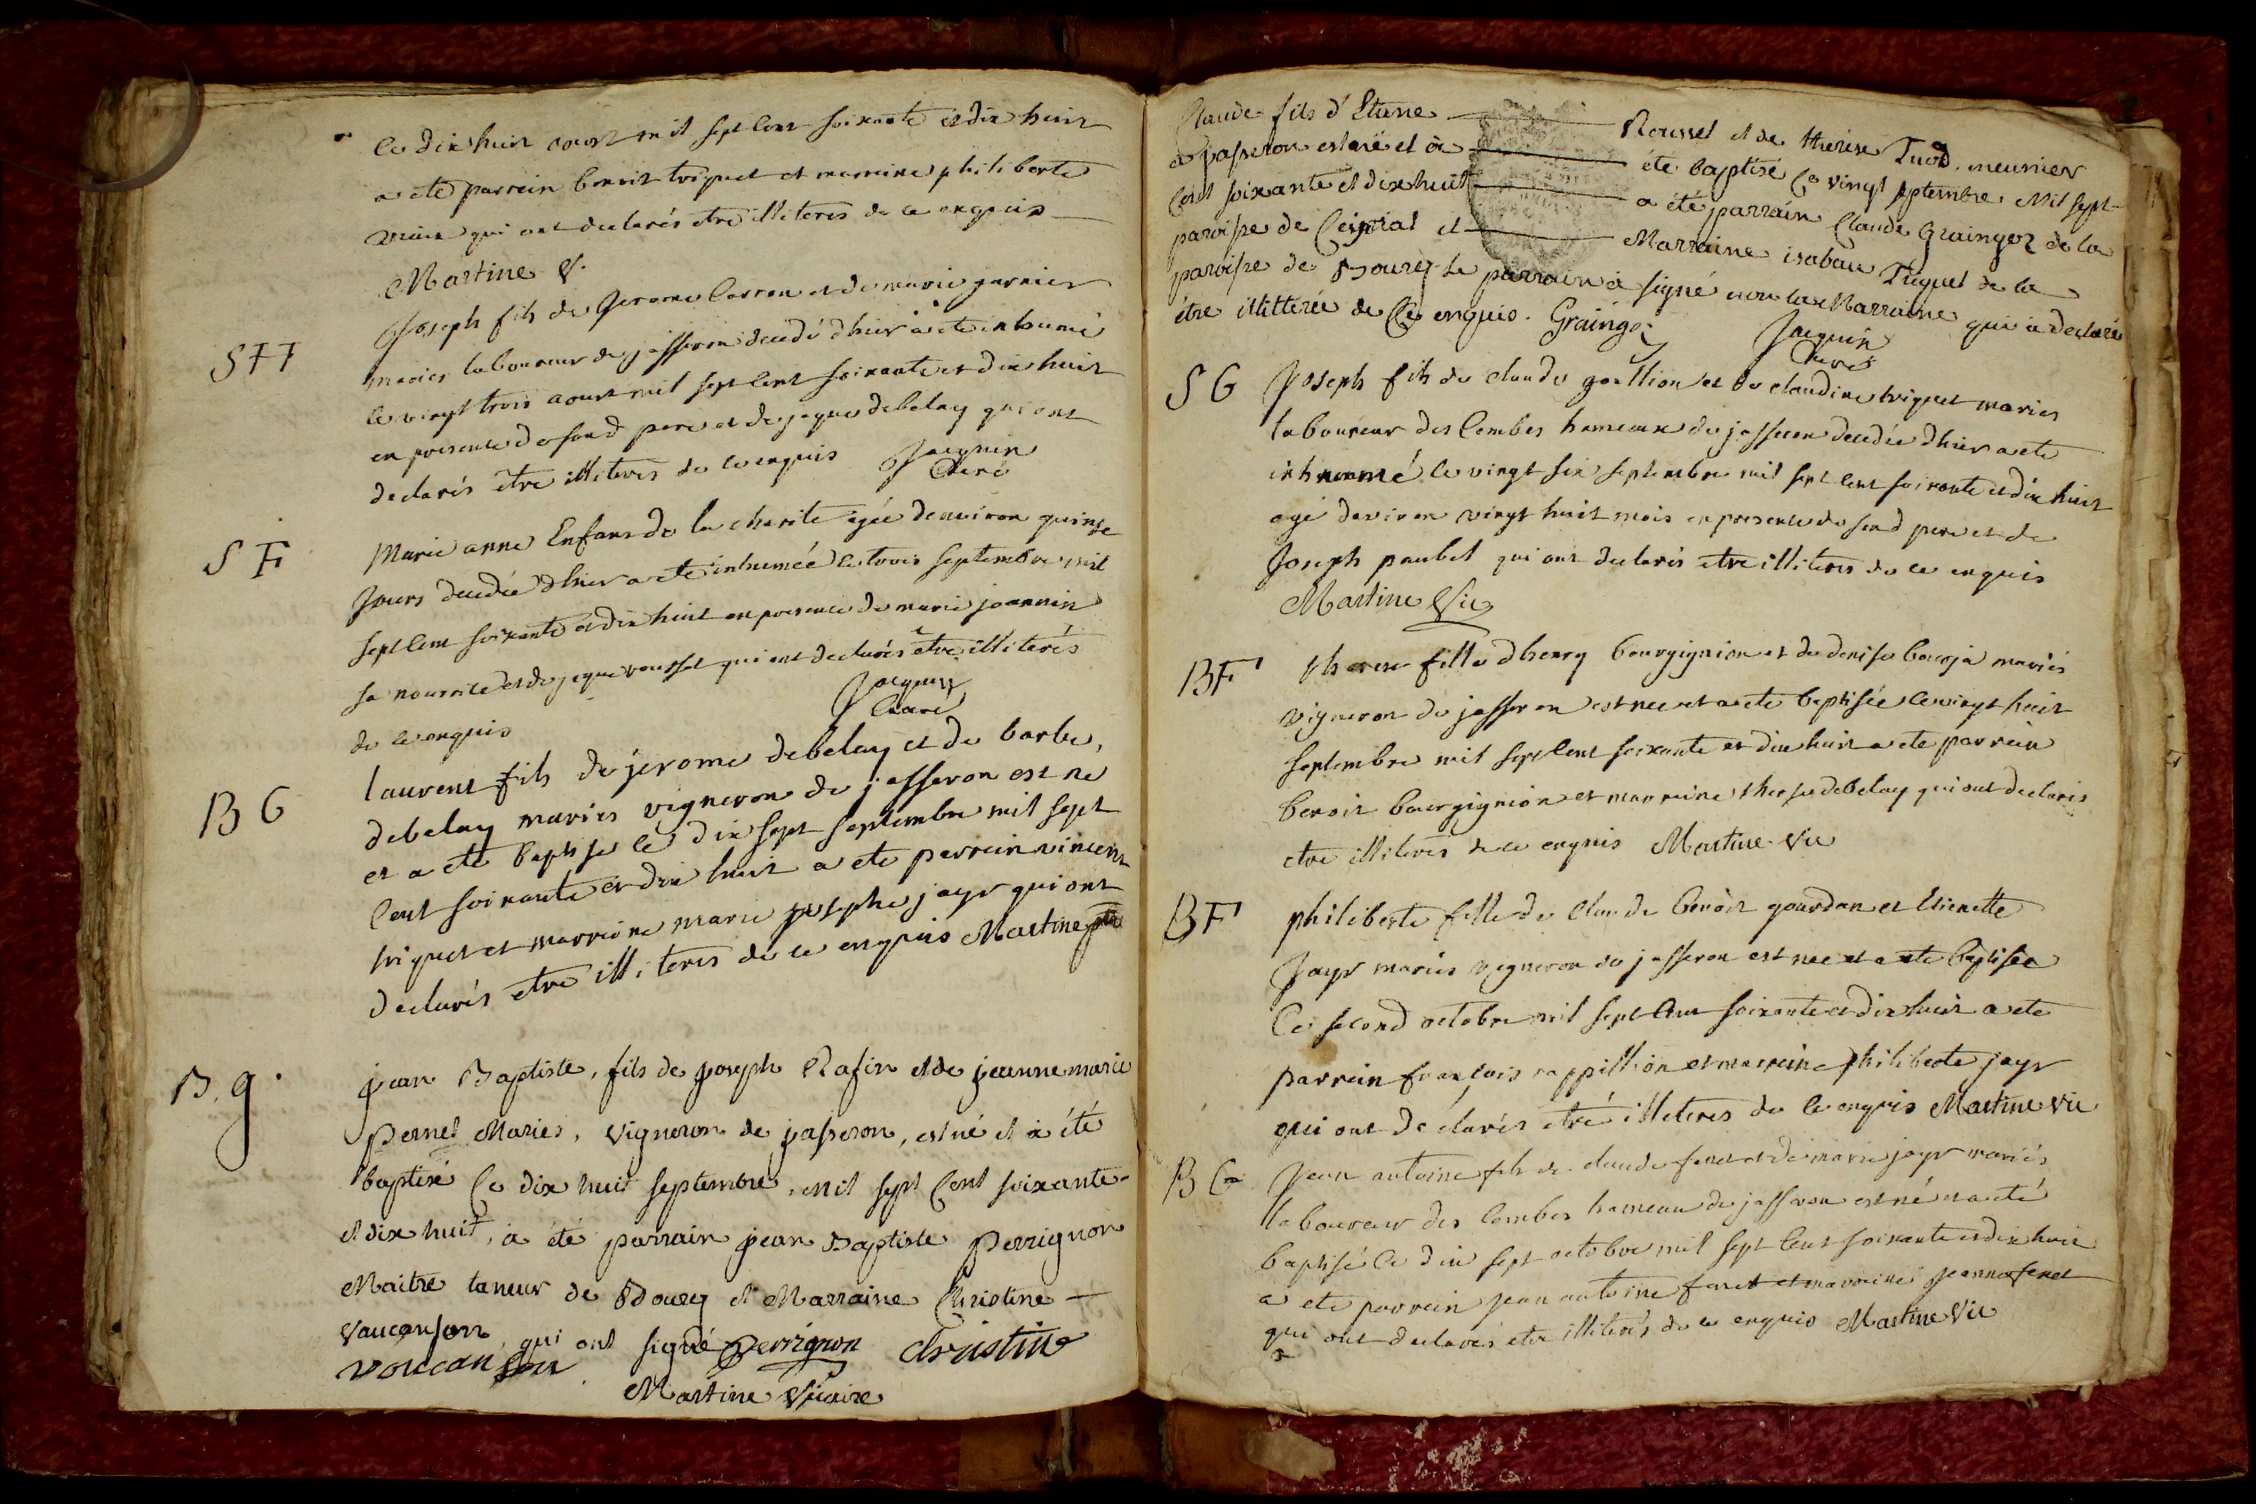 Ce dix huit aoust mil sept cent soixante et dix huit
a ete parrein benoit triquet et marreine philiberte
qui ont declarés etre illiteres de ce enquis
Martine V.
Joseph fils de Jerome Carron et de marie garnier
mariés laboureur de jasseron decedé d'hier a ete inhumé
le vingt trois aoust mil sept cent soixante et dix huit
en presence de son d pere et de jaque debelay qui ont
declarés etre illiteres de ce enquis Jacquin
Curé
S F
Marie anne Enfans de la charite agée d'environ quinse
Jours decedée d'hier a ete inhumée le trois septembre mil
sept cent soixante et dix huit en presence de marie joannin
sa nourrice et de jaque rousset qui ont declarés être illiterés
de ce enquis
Jacquin
Curé
B G
laurent fils de jerome debelay et de barbe,
debelay mariés vigneron de jasseron est né
et a eté baptisé le dix sept septembre mil sept
Cent soixante et dix huit a ete parrein vincent
triquet et marreine marie josephe jayr qui ont
declarés etre illiteres de ce enquis Martine
B. g.
jean Baptiste, fils de joseph Rafin et de jeanne marie
Pernet Mariés, vigneron de jasseron, est né et à été
baptisé Ce dix huit septembre, mil sept Cent soixante
et dix huit, à été parrain jean Baptiste Perrignon
Maitre taneur de Bourg et Marraine Christine
Vaucanson, qui ont signé Perrignon christine
voucanson
Martine Vicaire
Claude fils d'Etiene Roussel et de thérèse Tuod, meunier
à jasseron est né et à été baptisé Ce vingt septembre Mil sept
Cent soixante et dix huit a été parrain Claude Grainger de la
paroisse de Ceyzeriat et Marraine isabau Triquet de la
paroisse de Bourg le parrain à signé non la Marraine qui a declaré
être illitterée de Ce enquis. Grainge
Jacquin
Curé
S G
Joseph fils de claude goullion et de claudine triquet mariés
laboureur des Combes hameaux de jasseron decedée d'hier a ete
inhummé le vingt six septembre mil sept cent soixante et dix huit
agé d'eviron vingt huit mois en presence de son d pere et de
Joseph paubel qui ont declarés etre illiteres de ce enquis
Martine Vic
BF
therese fille d'henry bourgignion et de denise bourja mariés
vigneron de jasseron est nee et a ete baptisée le vingt huit
septembre mil sept cent soixante et dix huit a ete parrein
benoit bourgignion et marreine therese debelay qui ont declarés
etre illiteres de ce enquis Martine Vic
BF
philiberte fille de Claude benoit gourdan et Etienette
Jayr mariés vigneron de jasseron est nee et a ete baptisée
Ce second octobre mil sept cent soixante et dix huit a ete
parrein francois rappillion et marreine philiberte jayr
qui ont déclarés etré illiteres de ce enquis Martine Vic
B G
Jean antoine fils de claude feret et de marie jayr mariés
laboureur des Combes hameau de jasseron est né et a eté
baptisé Ce dix sept octobre mil sept cent soixante et dix huit
a ete parrein jean antoine feret et marreine jeanne feret
qui ont declarés etre illiterés de ce enquis Martine Vic